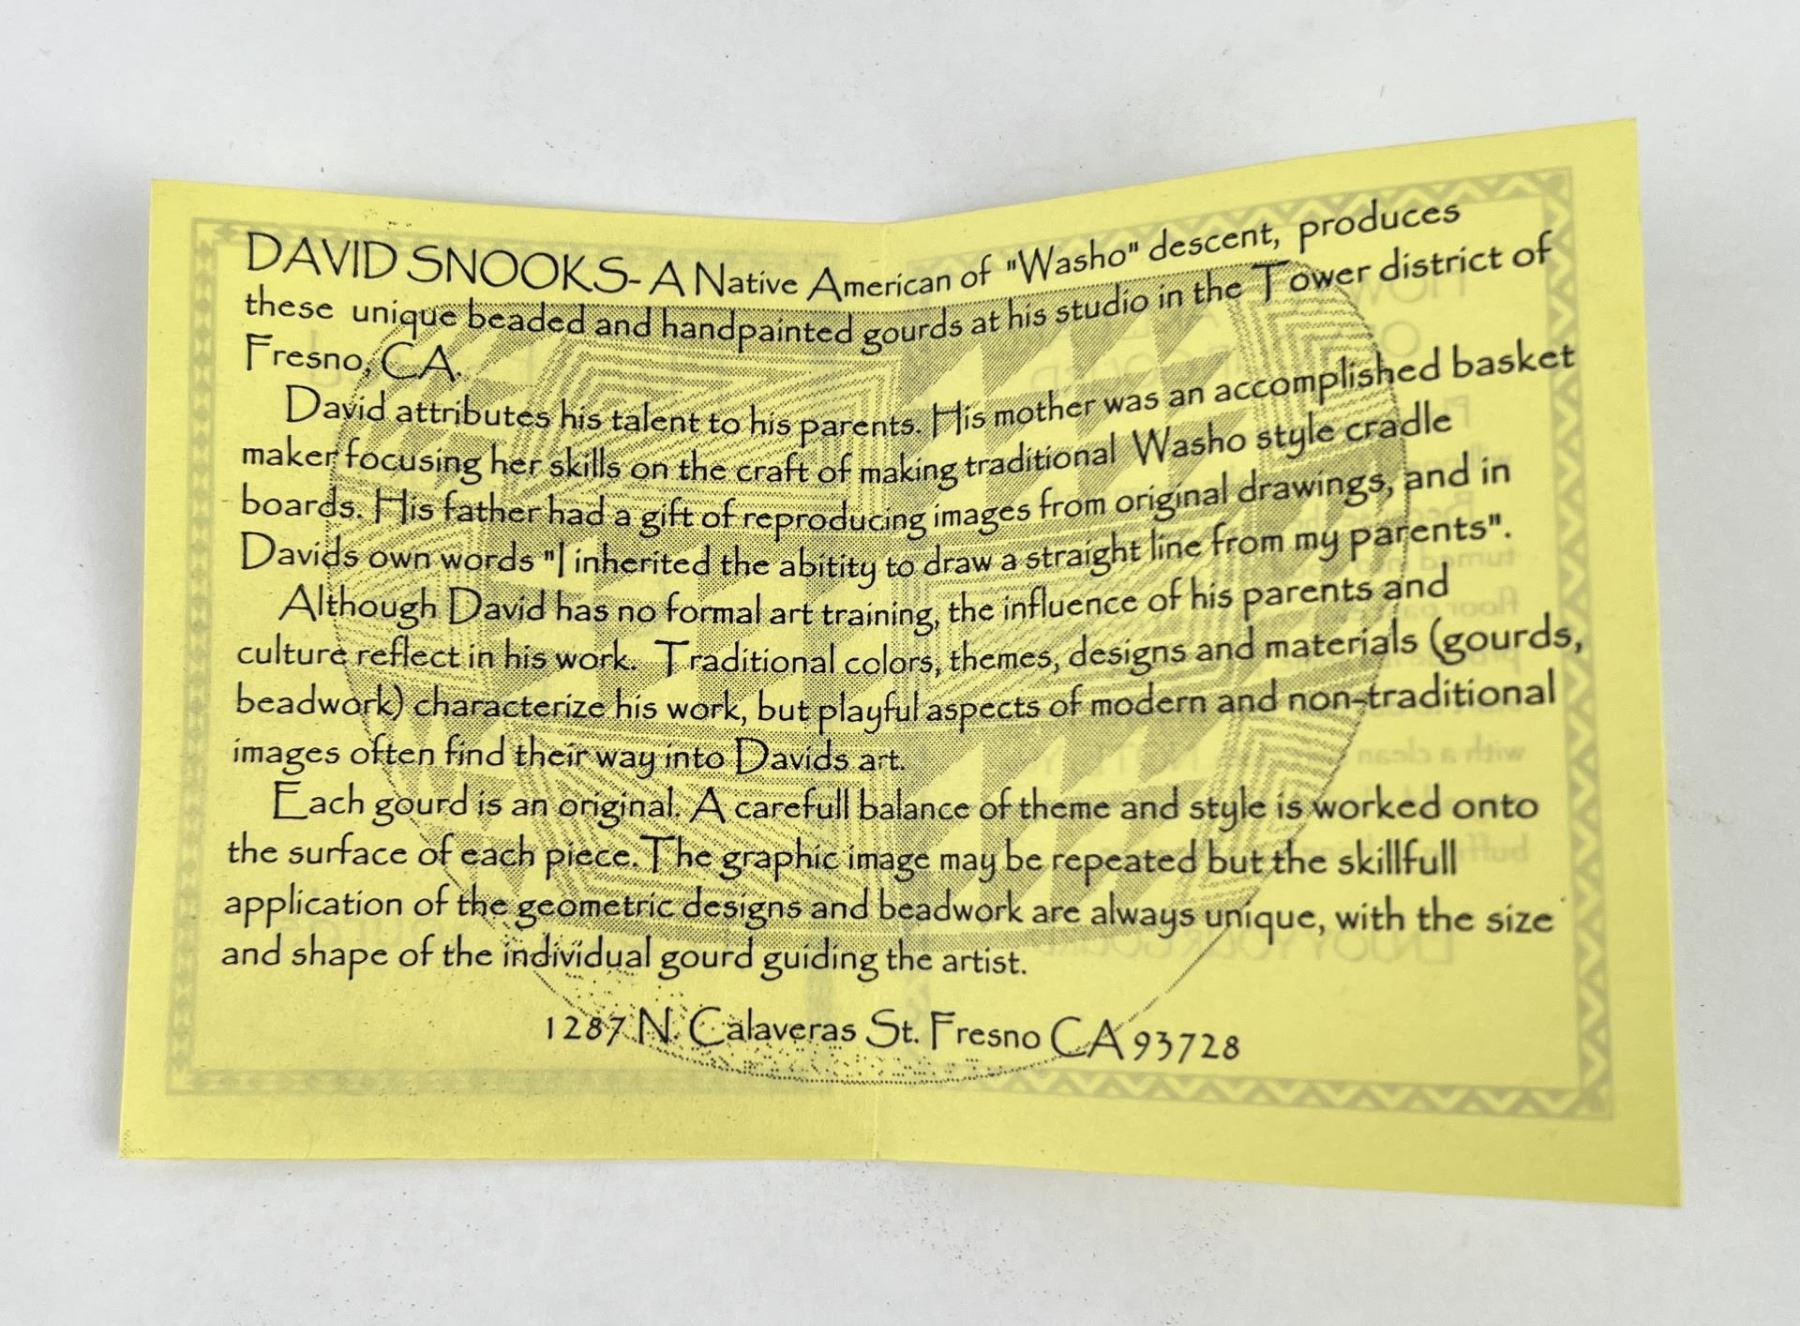 DAVID SNOOKS- A Native American of "Washo" descent, produces
these unique beaded and handpainted gourds at his studio in the Tower district of
Fresno, CA.
David attributes his talent to his parents. His mother was an accomplished basket
maker focusing her skills on the craft of making traditional Washo style cradle
boards. His father had a gift of reproducing images from original drawings, and in
Davids own words "I inherited the abitity to draw a straight line from my parents".
Although David has no formal art training, the influence of his parents and
culture reflect in his work. Traditional colors, themes, designs and materials (gourds,
beadwork) characterize his work, but playful aspects of modern and non-traditional
images often find their way into Davids art.
Each gourd is an original. A carefull balance of theme and style is worked onto
the surface of each piece. The graphic image may be repeated but the skillfull
application of the geometric designs and beadwork are always unique, with the size
and shape of the individual gourd guiding the artist.
1287 N. Calaveras St. Fresno CA 93728